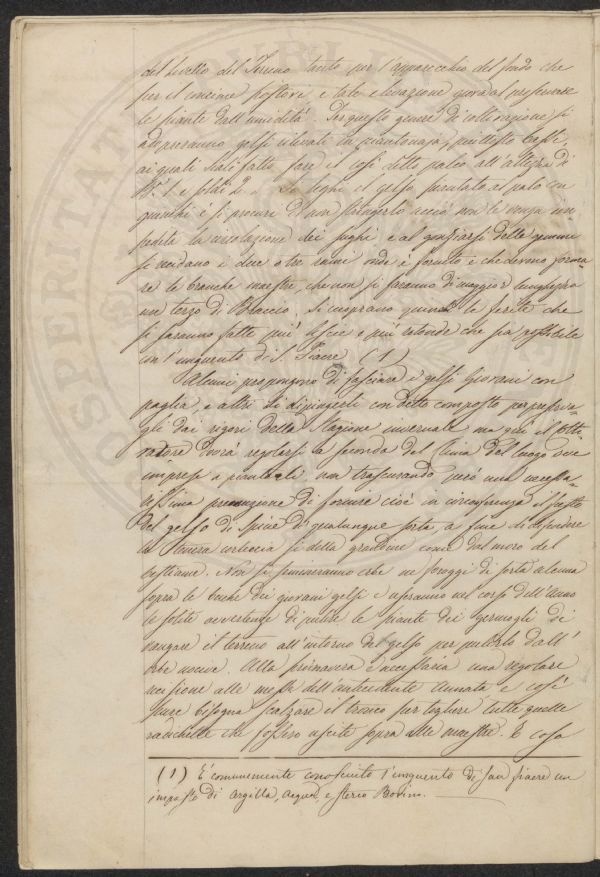 del livello del Terreno tanto per l'apparecchio del fondo che
per il concime postovi e tale elevazione giova a preservare
le piante dall'umidità. Per questo genere di coltivazione si
adopreranno gelsi rilevati da piantonaja, piuttosto bassi,
ai quali siasi fatto fare il così detto palco all'altezza di
Bª 1 e soldi 2. Si leghi il gelso piantato al palo con
giunchi e si procuri di non stringerlo acciò non le venga im-
pedita la circolazione dei sughi e al gonfiarsi delle gemme
si recidano i due o tre rami ond'è fornito e che devono forma-
re le branche maestre, che non si faranno di maggior lunghezza
un terzo di Braccio. Si cuoprano quindi le ferite che
si saranno fatte più liscie e più rotonde che sia possibile
con l'unguento di S. Fiacre (1)
Alcuni propongono di fasciare i gelsi Giovani con
paglia, e altri di dipingerli con detto composto per preserva-
gli dai rigori della Stagione invernale ma qui il Colti-
vatore dovrà regolarsi a seconda del Clima del luogo ove
imprese a piantarli non trascurando però una necessa-
rissima precauzione di fornire cioè in circonferenza il fusto
del gelso di Spine di qualunque sorta a fine di difendere
la tenera corteccia sì dalla grandine come dal morso del
bestiame. Non si semineranno erbe ne foraggi di sorta alcuna
sopra le buche dei giovani gelsi e useranno nel corso dell'Anno
le solite avvertenze di pulire le piante dei germogli di
vangare il terreno all'intorno del gelso per pulirlo dall'
Erbe nocive. Alla primavera è necessaria una regolare
recisione alle messe dell'antecedente Annata e così
pure bisogna scalzare il tronco per togliere tutte quelle
radichette che fossero uscite sopra alle maestre. È cosa
(1) È comunemente conosciuto l'unguento di San fiacre un
imposto di Argilla, Acqua, e sterco Bovino.